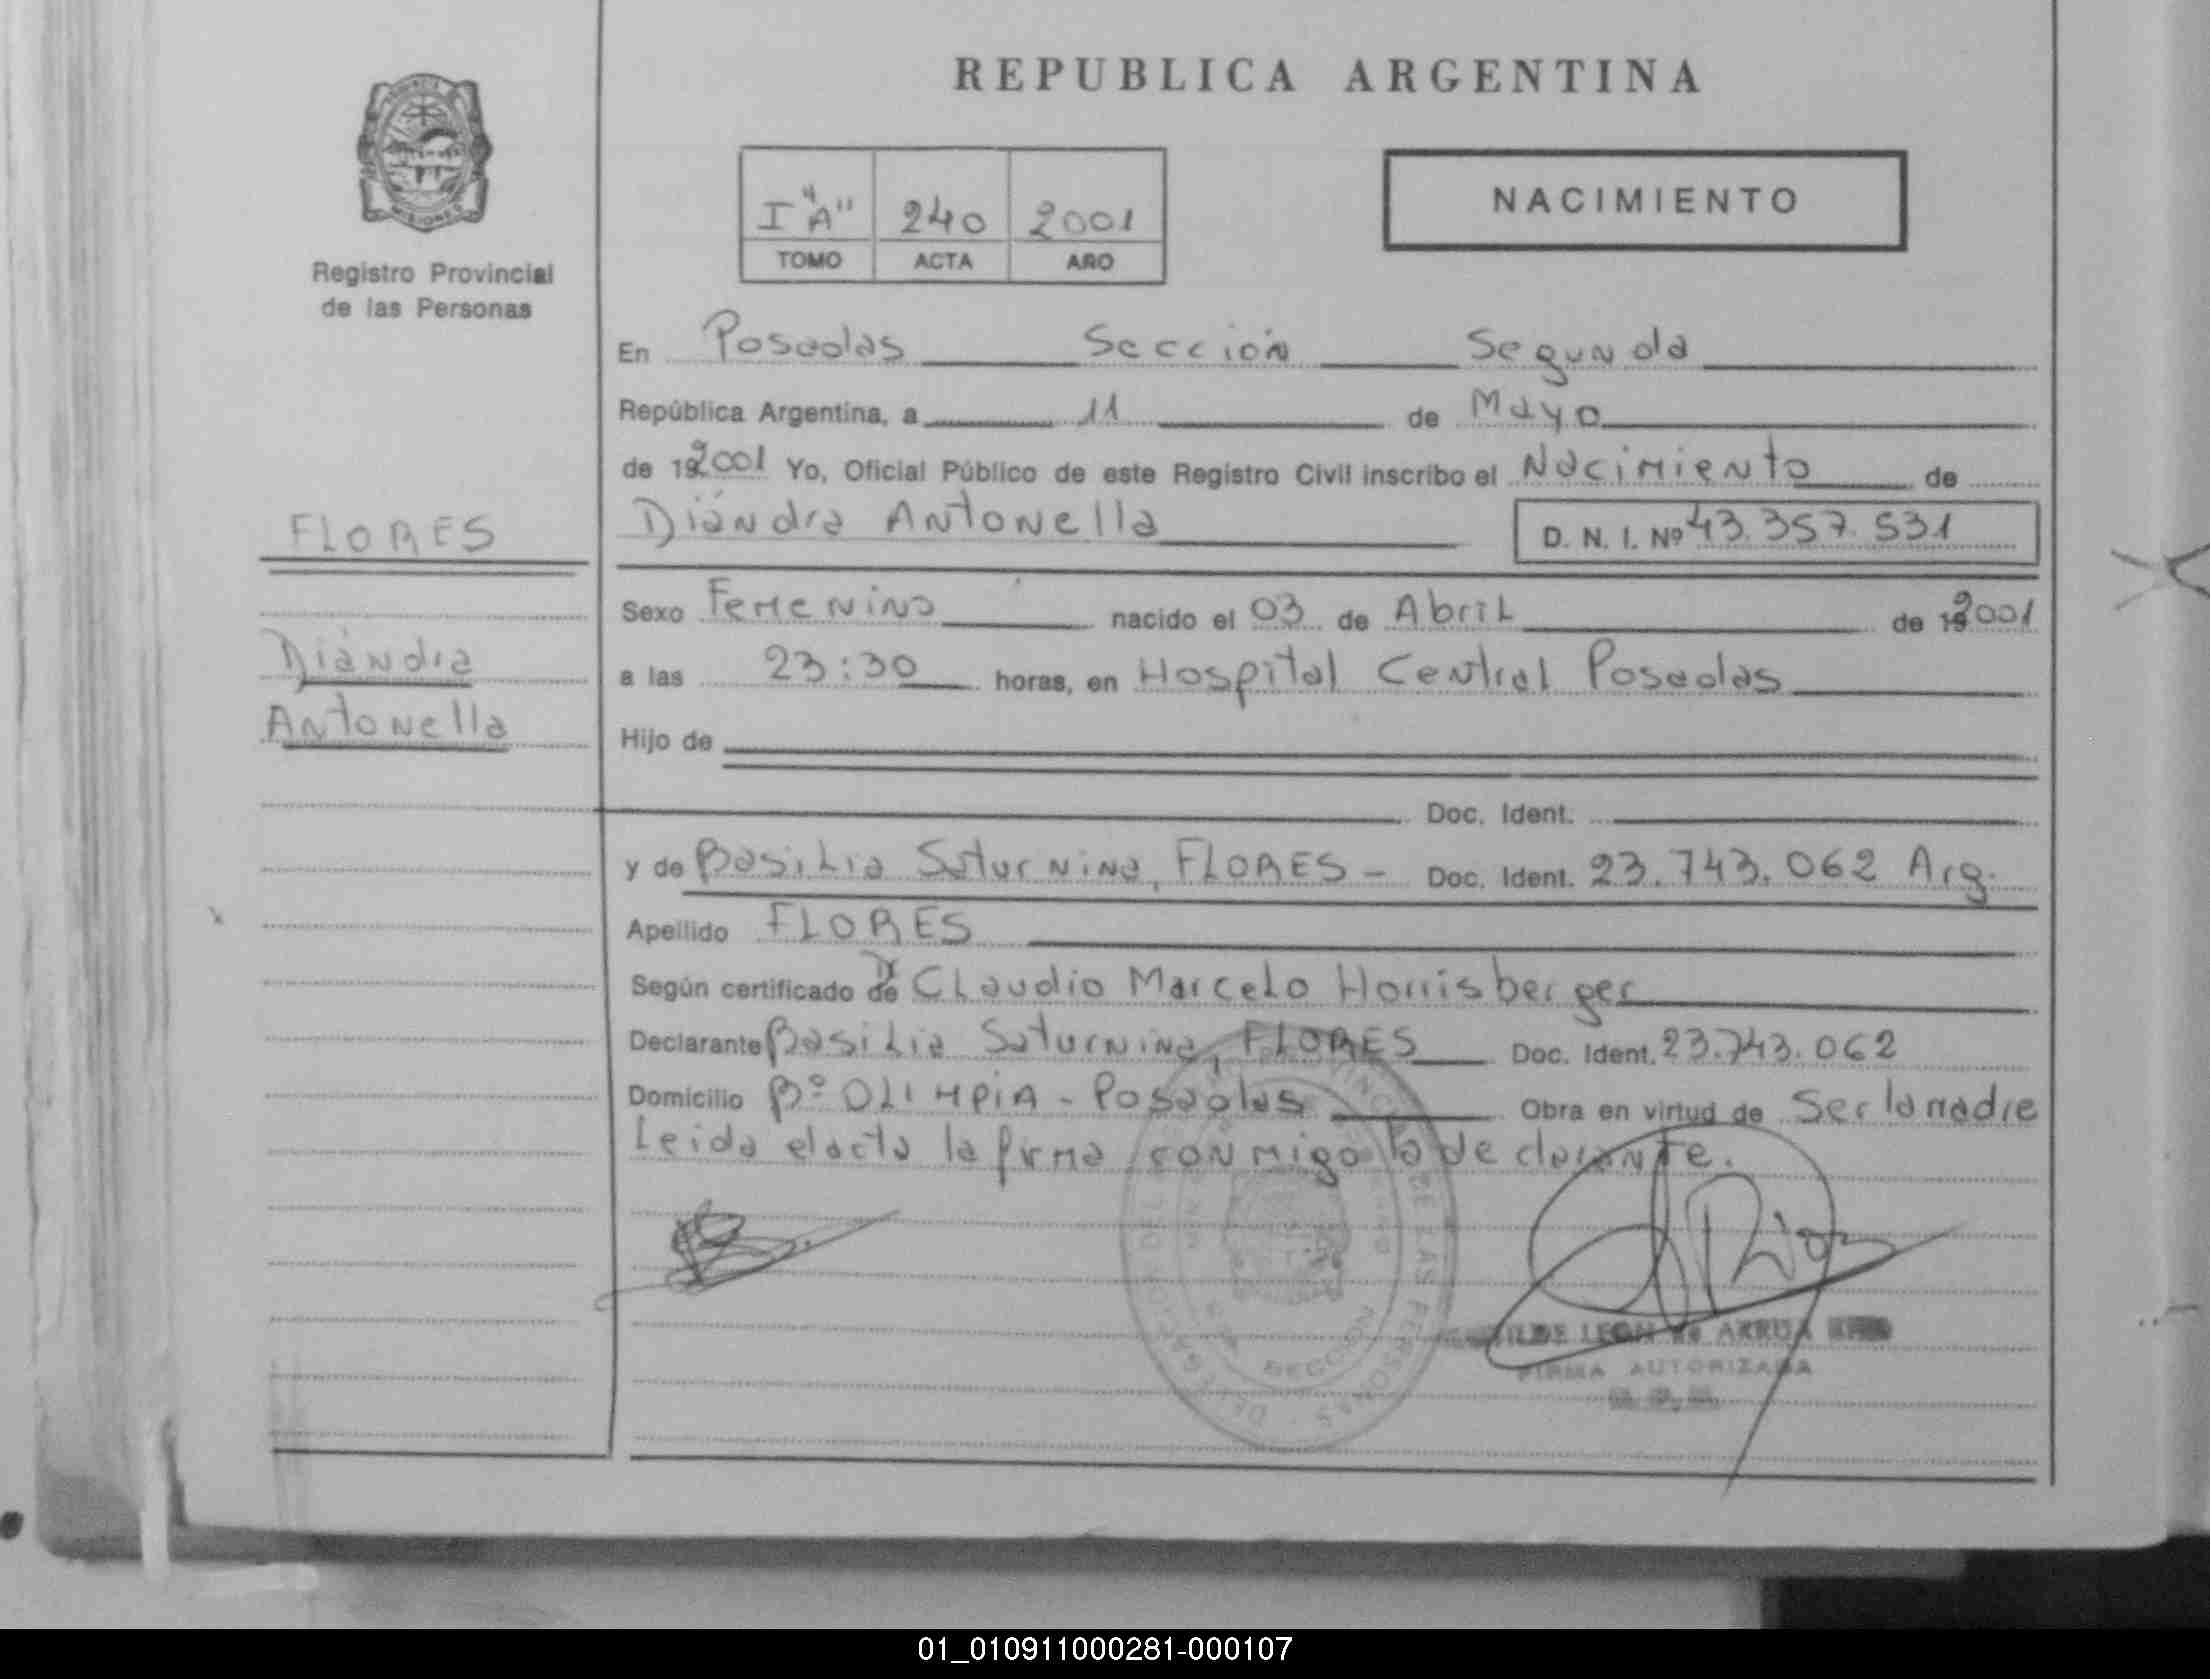 REPUBLICA ARGENTINA
PROVINCIA
MISIONES
Registro Provincial
de las Personas
I "A" 240 2001
TOMO ACTA AÑO
NACIMIENTO
En Posadas Sección Segunda
República Argentina, a 11 de Mayo
de 192001 Yo, Oficial Público de este Registro Civil inscribo el Nacimiento de
Diándra Antonella D. N. I. Nº 43.357.531
FLORES
Diándra
Antonella
Sexo Femenino nacido el 03 de Abril de 192001
a las 23:30 horas, en Hospital Central Posadas
Hijo de
Doc. Ident.
y de Basilia Saturnina, FLORES - Doc. Ident. 23.743.062 Arg.
Apellido FLORES
Según certificado de Dr Claudio Marcelo Horrisberger
Declarante Basilia Saturnina, FLORES Doc. Ident. 23.743.062
Domicilio Bº OLIMPIA - Posadas Obra en virtud de Ser la madre
Leida el acta la firma conmigo la declarante.
LEON de ARRUA
FIRMA AUTORIZADA
01_010911000281-000107